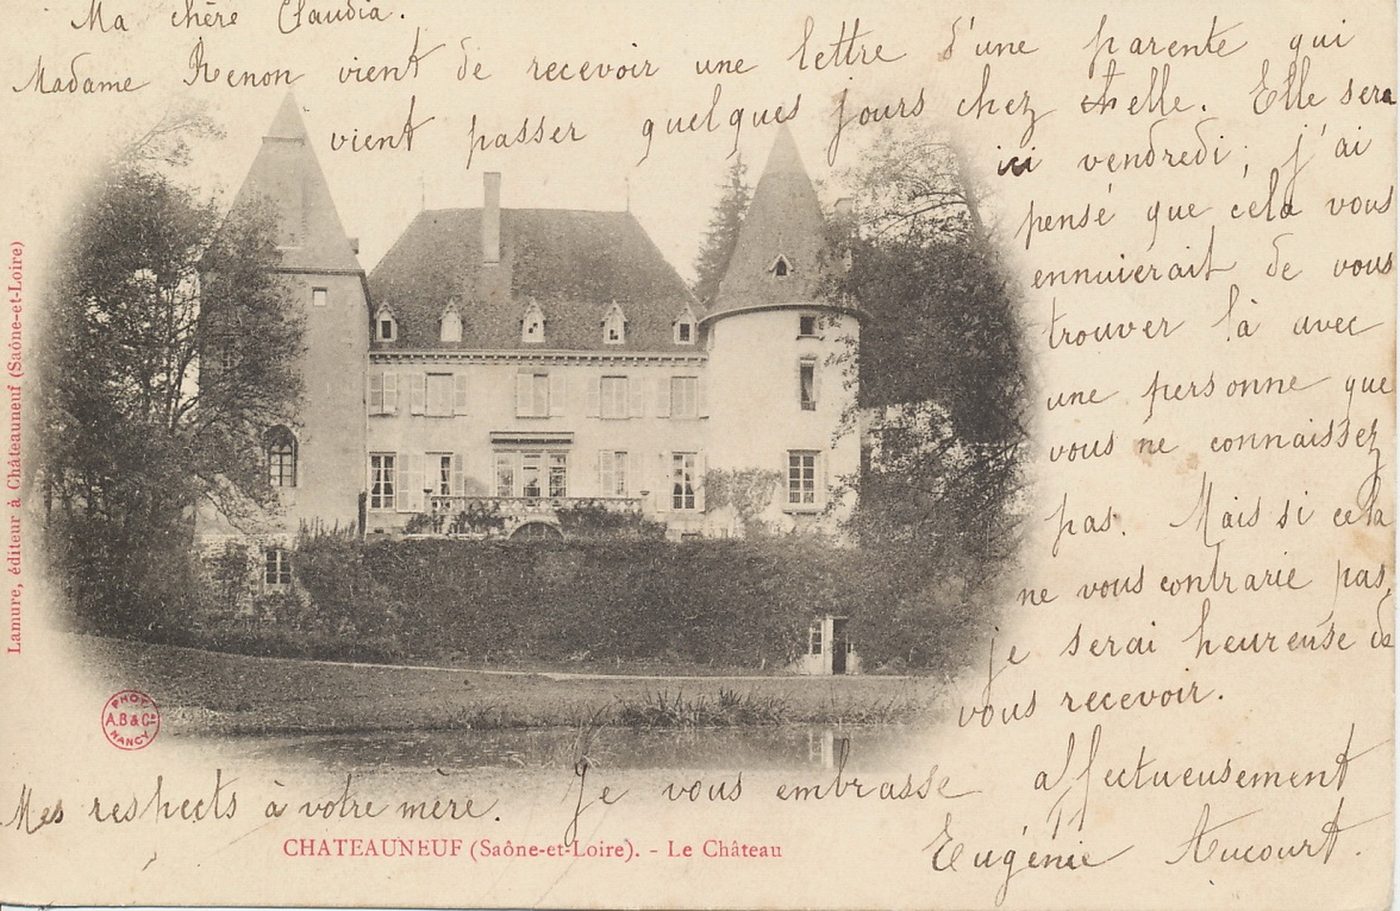 Ma chère Claudia.
Madame Renon vient de recevoir une lettre d'une parente qui
vient passer quelques jours chez elle. Elle sera
ici vendredi; j'ai
pensé que cela vous
ennuierait de vous
trouver là avec
une personne que
vous ne connaissez
pas. Mais si cela
ne vous contrarie pas,
je serai heureuse de
vous recevoir.
Je vous embrasse affectueusement
Mes respects à votre mère.
Eugénie Aucourt.
CHATEAUNEUF (Saône-et-Loire). - Le Château
Lamure, éditeur à Châteauneuf (Saône-et-Loire)
PHOT.
A.B & Cie
NANCY